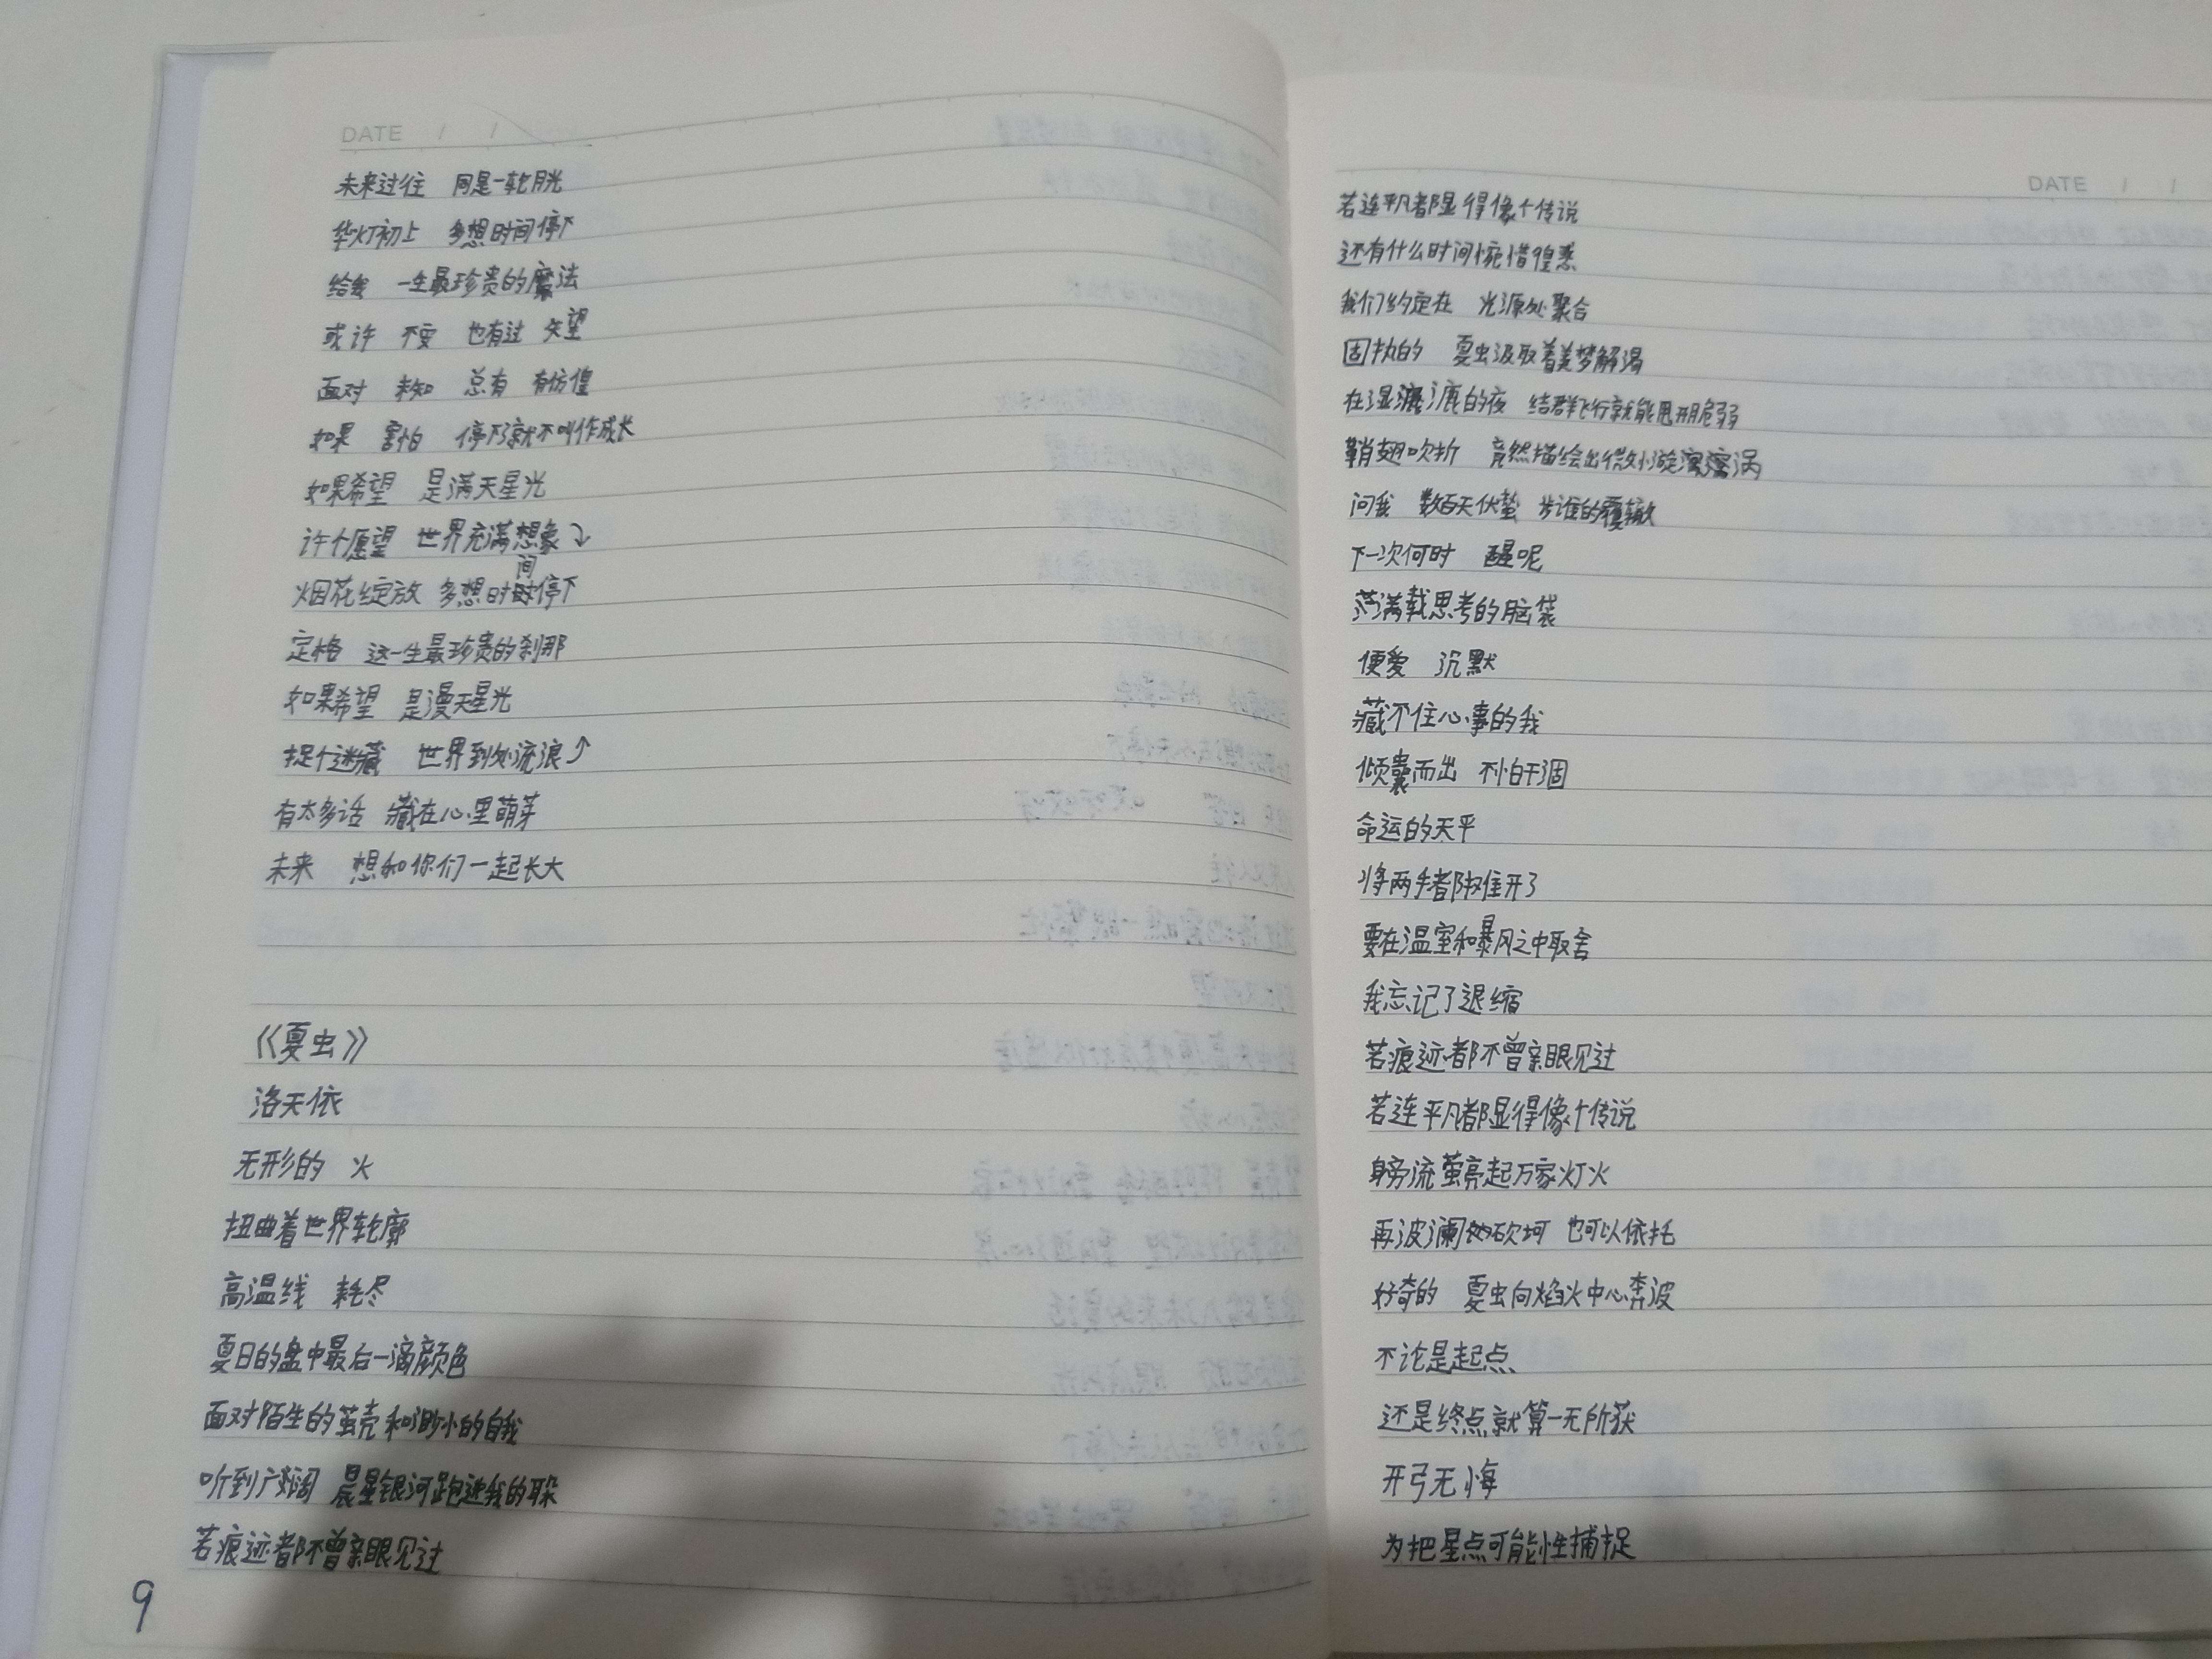 DATE / /
未来过往 同是一轮月光
华灯初上 多想时间停下
给我 一生最珍贵的魔法
或许 不安 也有过 失望
面对 未知 总有 有彷徨
如果 害怕 停下了就不叫作成长
如果希望 是满天星光
许个愿望 世界充满想象
间
烟花绽放 多想时停下
定格 这一生最珍贵的刹那
如果希望 是漫天星光
捉个迷藏 世界到处流浪
有太多话 藏在心里萌芽
未来 想和你们一起长大
《夏虫》
洛天依
无形的 火
扭曲着世界轮廓
高温线 耗尽
夏日的盘中最后一滴颜色
面对陌生的茧壳和渺小的自我
听到广郊阔 晨星银河跑进我的耳朵
若痕迹都不曾亲眼见过
9
DATE / /
若连平凡都显得像个传说
还有什么时间惋惜惶惑
我们约定在 光源处聚合
固执的 夏虫汲取着美梦解渴
在湿漉漉的夜 结群飞行就能甩开脆弱
鞘翅吹折 竟然描绘出微小旋涡
问我 数百天伏蛰 步谁的覆辙
下一次何时 醒呢
满载思考的脑袋
便爱 沉默
藏不住心事的我
倾囊而出 不怕干涸
命运的天平
将两手都摊开了
要在温室和暴风之中取舍
我忘记了退缩
若痕迹都不曾亲眼见过
若连平凡都显得像个传说
身旁流萤亮起万家灯火
再波澜的坎坷 也可以依托
好奇的 夏虫向焰火中心奔波
不论是起点
还是终点就算一无所获
开弓无悔
为把星点可能性捕捉